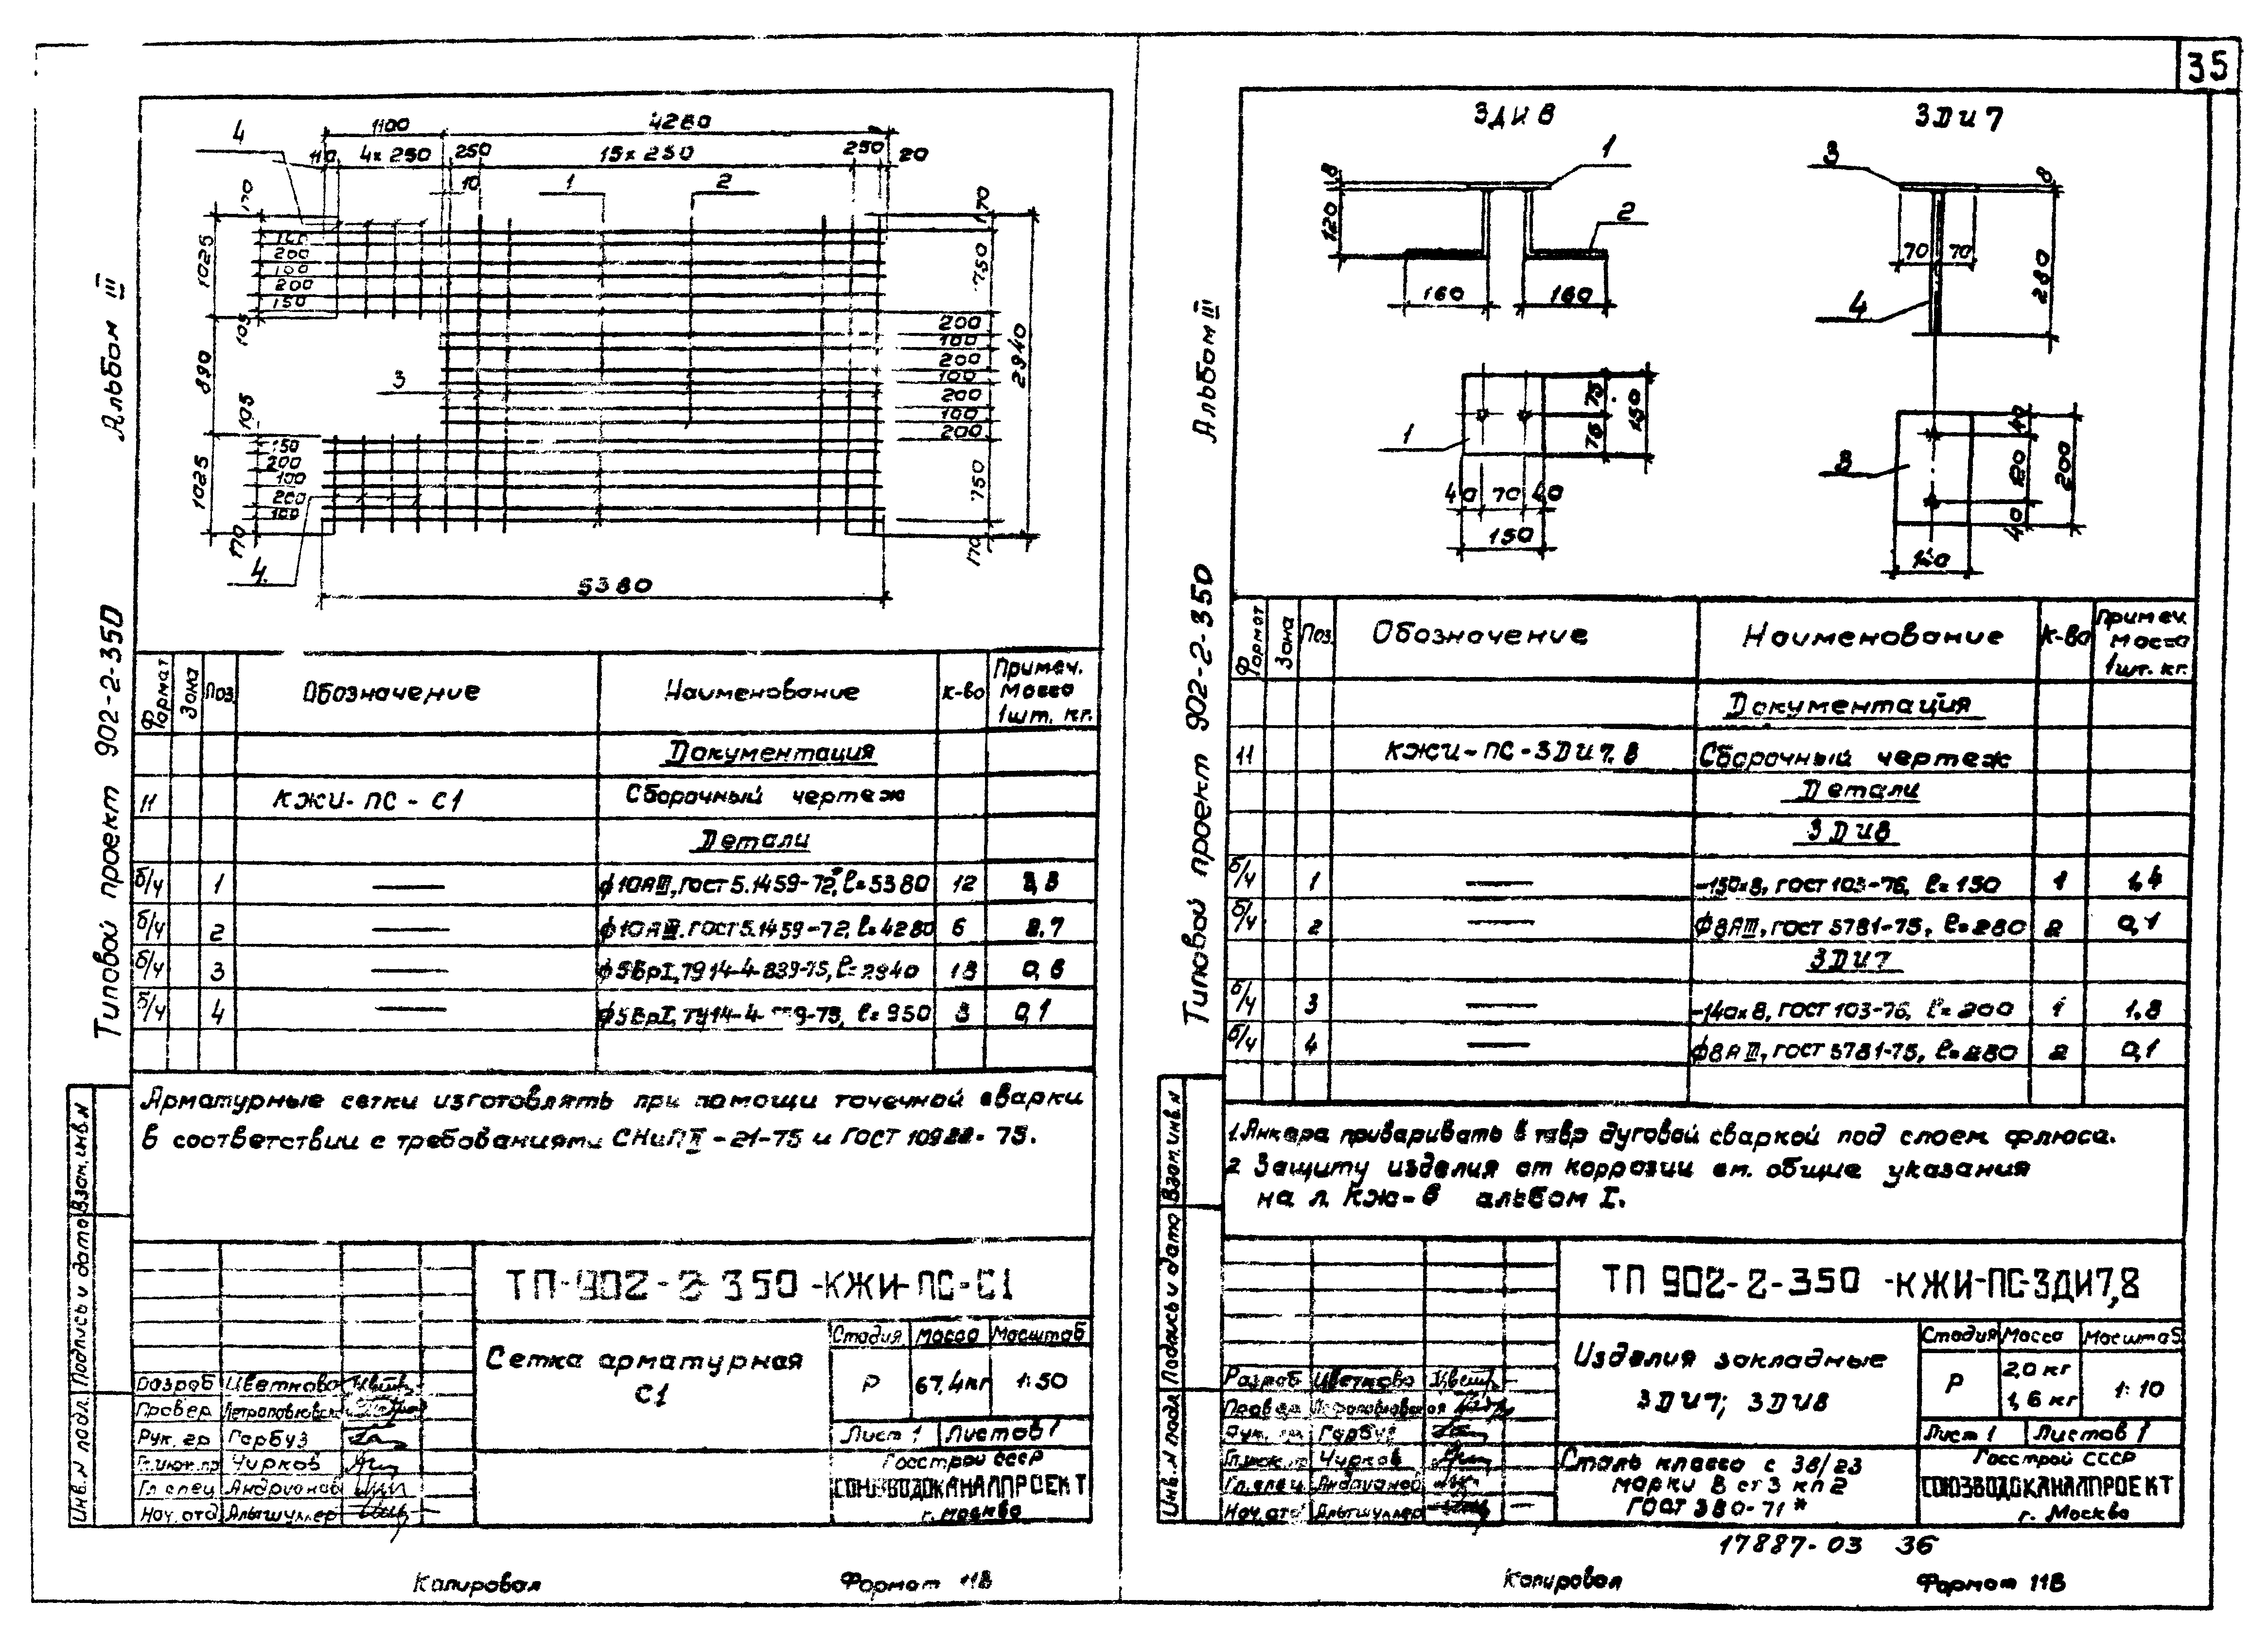 35
Альбом III
Типовой проект 902-2-350
1100
4280
4
110
4х250
250
15х250
250
20
10
1
2
170
1025
200
100
200
150
105
890
3
105
150
200
100
200
100
1025
170
4
170
750
200
100
200
100
200
100
200
750
170
2940
5380
Формат
Зона
Поз.
Обозначение
Наименование
К-во
Примеч. масса 1шт. кг.
Документация
11 КЖИ-ПС-С1 Сборочный чертеж
Детали
б/ч 1 — ф10АIII, ГОСТ 5.1459-72*, ℓ=5380 12 3,3
б/ч 2 — ф10АIII, ГОСТ 5.1459-72, ℓ=4280 6 2,7
б/ч 3 — ф5ВрI, ТУ14-4-659-75, ℓ=2940 18
б/ч 4 — ф5ВрI, ТУ14-4- -75, ℓ=950 8 0,1
Арматурные сетки изготовлять при помощи точечной сварки
в соответствии с требованиями СНиП II-21-75 и ГОСТ 10922-75.
Взам. инв. N
Подпись и дата
Инв. N подл.
ТП-902-2-350-КЖИ-ПС-С1
Сетка арматурная
С1
Стадия Масса Масштаб
Р 67,4кг 1:50
Лист 1 Листов 1
Госстрой СССР
СОЮЗВОДОКАНАЛПРОЕКТ
г. Москва
Разраб Цветкова
Провер Петропавловская
Рук. гр Гарбуз
Гл.инж.пр Чирков
Гл.спец Андрианов
Нач.отд Альтшуллер
Копировал
Формат 11В
Альбом III
Типовой проект 902-2-350
ЗДИ8
ЗДИ7
1
8
120
2
160
160
1
75
75
150
40 70 40
150
3
8
70 70
280
4
3
40
120
40
200
140
Формат
Зона
Поз.
Обозначение
Наименование
К-во
Примеч. масса 1шт. кг.
Документация
11 КЖИ-ПС-ЗДИ7,8 Сборочный чертеж
Детали
ЗДИ8
б/ч 1 — -150х8, ГОСТ 103-76, ℓ=150 1 1,4
б/ч 2 — ф8АIII, ГОСТ 5781-75, ℓ=280 2 0,1
ЗДИ7
б/ч 3 — -140х8, ГОСТ 103-76, ℓ=200 1 1,8
б/ч 4 — ф8АIII, ГОСТ 5781-75, ℓ=280 2 0,1
1. Анкера приваривать в тавр дуговой сваркой под слоем флюса.
2 Защиту изделия от коррозии см. общие указания
на л. КЖ-6 альбом I.
Взам. инв. N
Подпись и дата
Инв. N подл.
ТП 902-2-350-КЖИ-ПС-ЗДИ7,8
Изделия закладные
ЗДИ7; ЗДИ8
Стадия Масса Масштаб
Р 2,0 кг 1,6 кг 1:10
Лист 1 Листов 1
Сталь класса с 38/23
марки В ст3 кп2
ГОСТ 380-71*
Госстрой СССР
СОЮЗВОДОКАНАЛПРОЕКТ
г. Москва
Разраб Цветкова
Провер Петропавловская
Рук. гр Гарбуз
Гл.инж.пр Чирков
Гл.спец Андрианов
Нач.отд Альтшуллер
17887-03 36
Копировал
Формат 11В